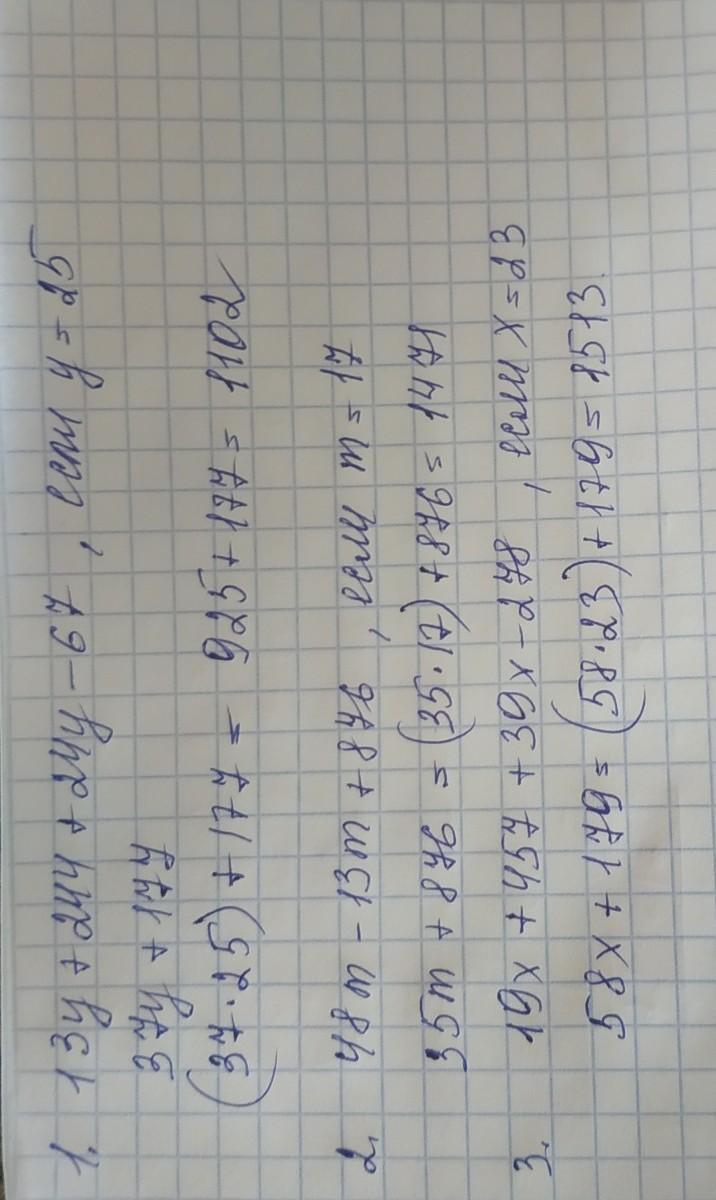 1. 13y + 244 + 24y - 67 , если y = 25
37y + 177
(37·25) + 177 = 925 + 177 = 1102
2. 48m - 13m + 876 , если m = 17
35m + 876 = (35·17) + 876 = 1471
3. 19x + 457 + 39x - 278 , если x = 23
58x + 179 = (58·23) + 179 = 1513.